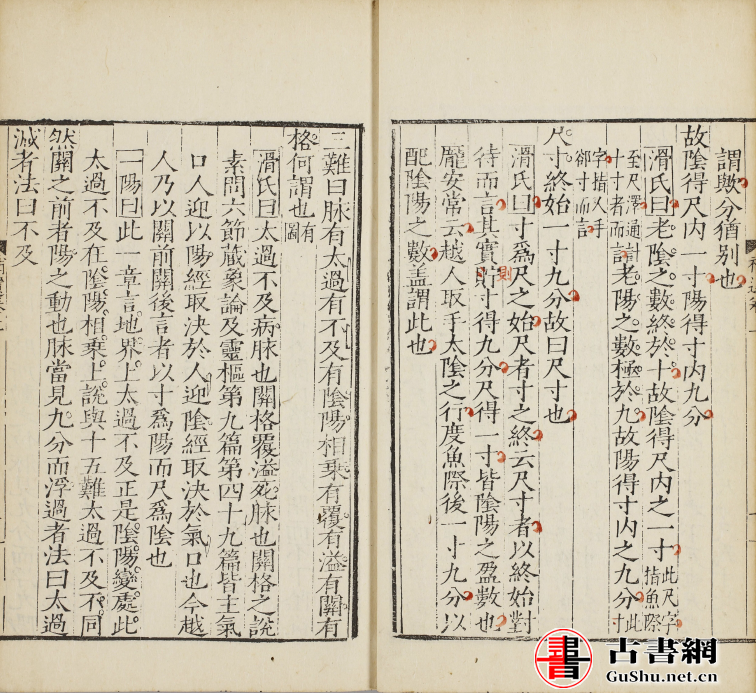 謂歟分猶別也
故陰得尺內一寸陽得寸內九分
滑氏曰老陰之數終於十故陰得尺內之一寸此尺字指魚際
至尺澤通計十寸者而言老陽之數極於九故陽得寸內之九分此寸
字指人手卻寸而言
尺寸終始一寸九分故曰尺寸也
滑氏曰寸爲尺之始尺者寸之終云尺寸者以終始對
待而言其實貯則寸得九分尺得一寸皆陰陽之盈數也
龐安常云越人取手太陰之行度魚際後一寸九分以
配陰陽之數盖謂此也
三難曰脉有太過有不及有陰陽相乗有覆有溢有關有
格何謂也有圖
滑氏曰太過不及病脉也關格覆溢死脉也關格之說
素問六節藏象論及靈樞第九篇第四十九篇皆主氣
口人迎以陽經取決於人迎陰經取決於氣口也今越
人乃以關前關後言者以寸爲陽而尺爲陰也
一陽曰此一章言地界上太過不及正是陰陽變處此
太過不及在陰陽相乗上說與十五難太過不及不同
然關之前者陽之動也脉當見九分而浮過者法曰太過
減者法曰不及
書
古書網
GuShu.net.cn